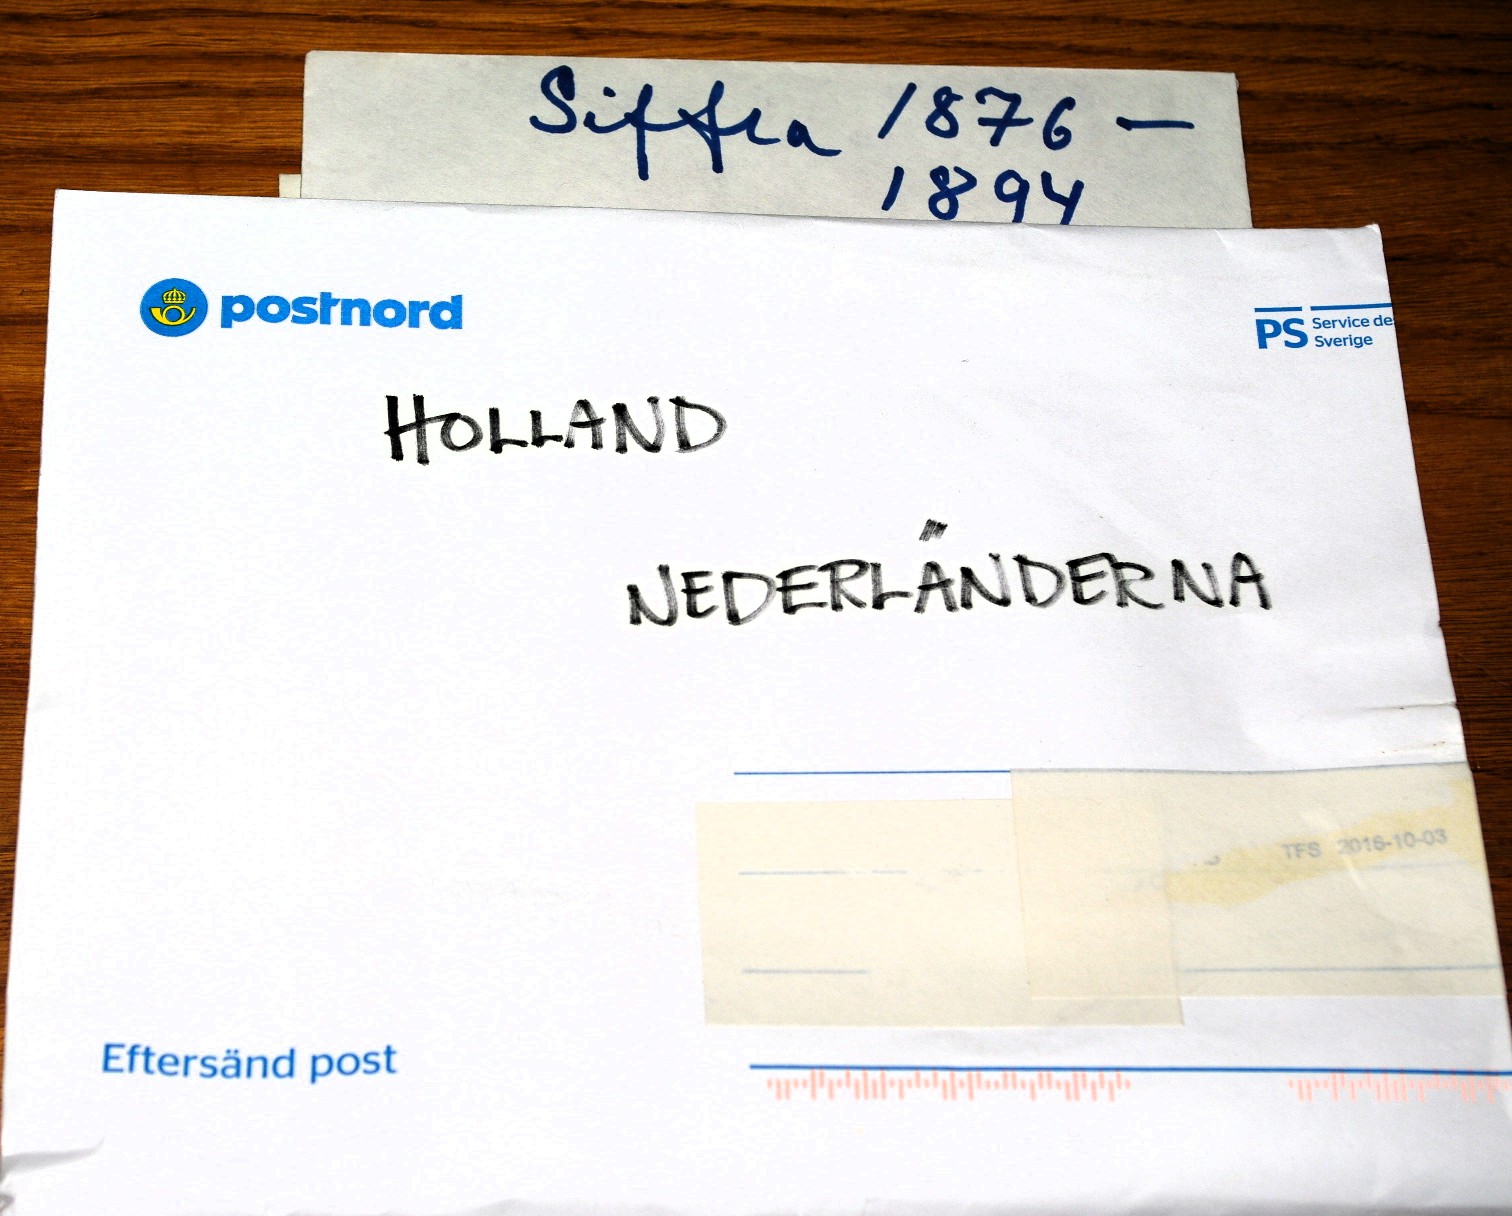 Siffra 1876 –
1894
postnord
PS Service de
Sverige
HOLLAND
NEDERLÄNDERNA
TFS 2016-10-03
Eftersänd post